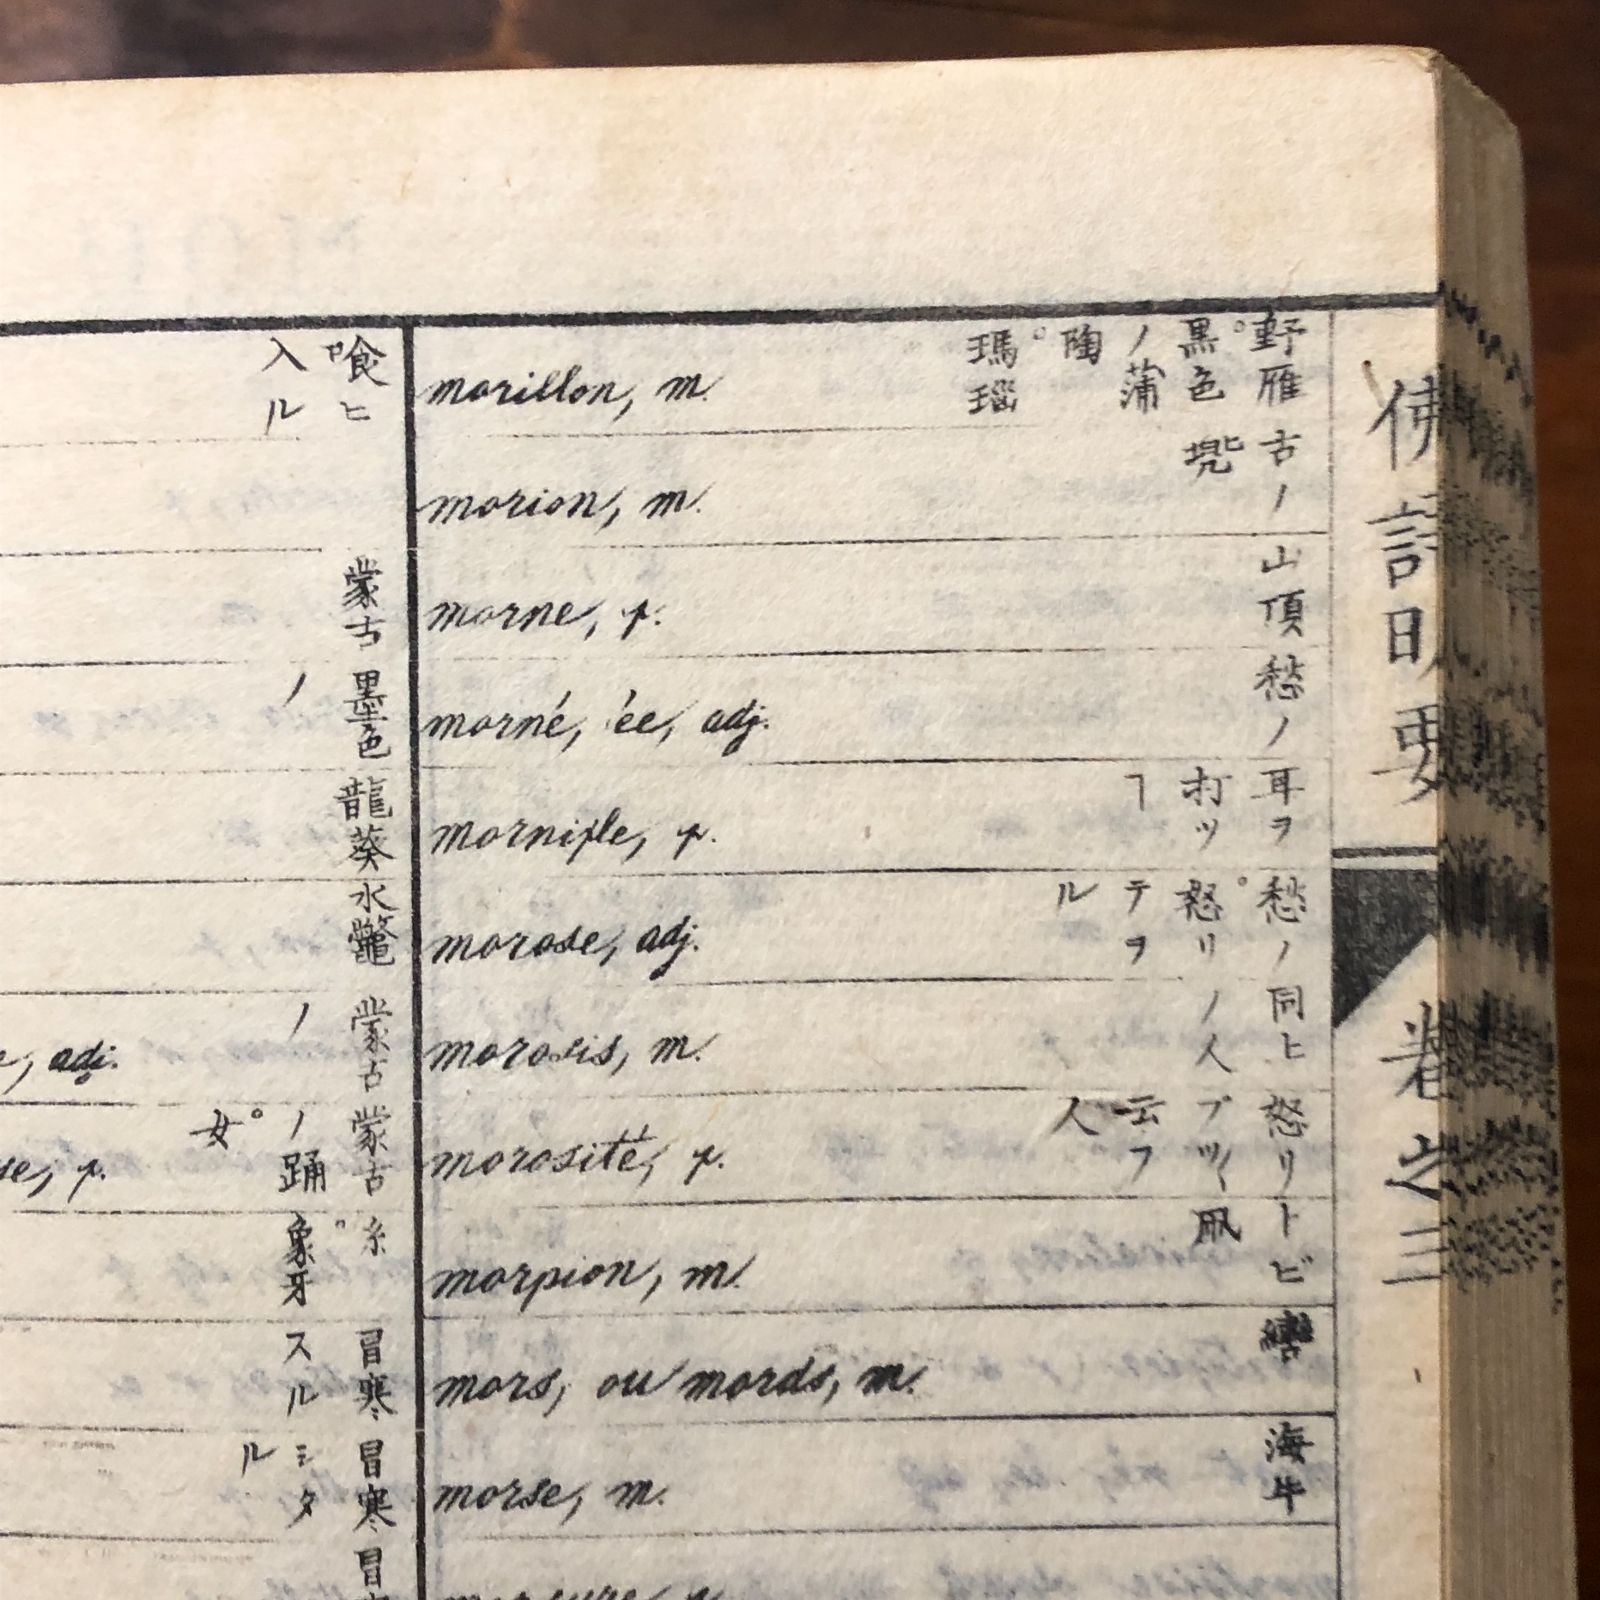 喰ヒ
入ル
蒙古
墨色
ノ
龍葵
水鼈
e, adj.
蒙古
ノ
se, f.
蒙古
ノ踊
女
糸
象牙
冒寒
スル
冒寒
シタ
ル
冒
morillon, m.
野雁
黒色
ノ蒲
陶
瑪瑙
morion, m.
古ノ
morne, f.
山頂
morné, ée, adj.
愁ノ
mornifle, f.
耳ヲ
打ツ
ヿ
morose, adj.
愁ノ
怒リ
テヲ
ル
morosis, m.
同ヒ
ノ人
morosité, f.
怒リ
云フ
人
morpion, m.
トビ
mors, ou mords, m.
轡
morse, m.
海牛
morsure, f.
佛語明要
巻之三